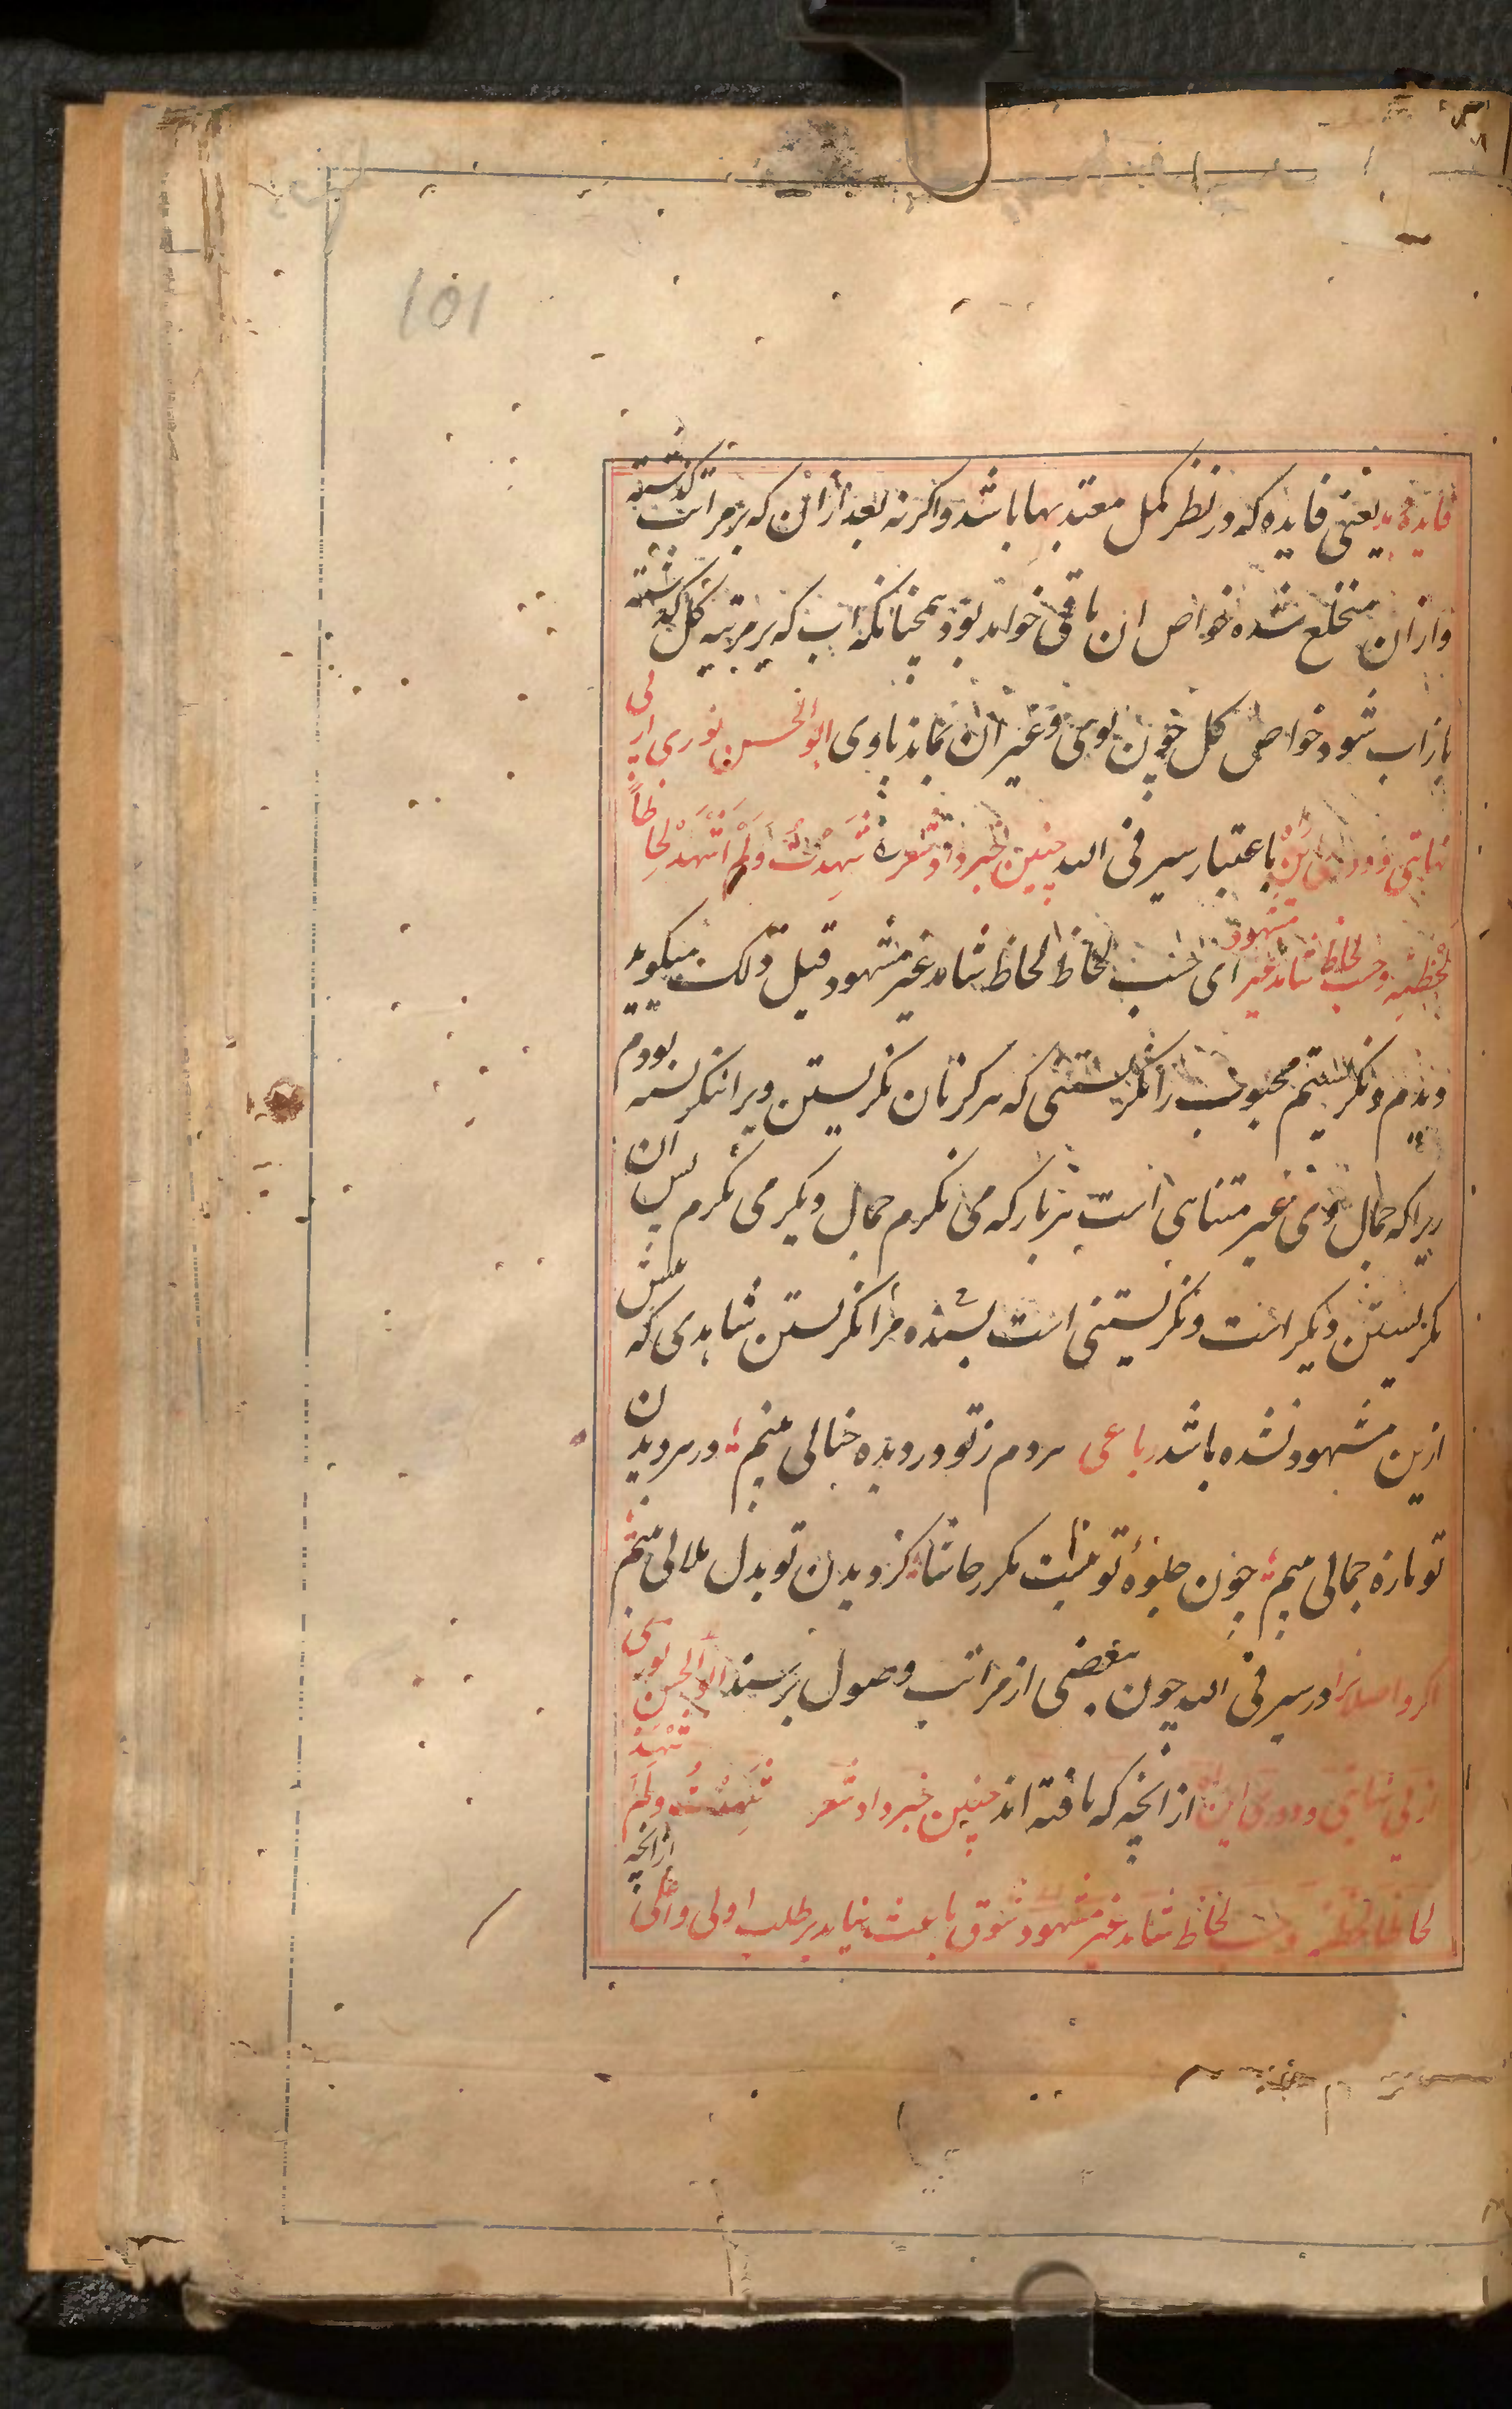 101
فایده دهد یعنی فایده که در نظر کمل معتد بها باشد و اکرنه بعد از ان که بر مراتب کذشته
و از ان منخلع شده خواص ان باقی خواهد بود همچنانکه اب که بر مرتبه کل کذشته
باز اب شود خواص کل چون بوی و غیر ان نماند باوی ابو الحسن نوری از بی
نهایتی و دوری این باعتبار سیر فی الله چنین خبر داد شعر شَهِدْتُ وَلَمْ اَشْهَدْ لِحَاظاً
لحظته و حسب لحاظ شاهد غیر مشهود ای حسب لحاظ الحاظ شاهد غیر مشهود قبل ذلک میکوید
دیدم و نکرستیم محبوب را نکرستنی که هرکز تان نکریستن ویرا ننکرسته بودم
زیرا که جمال وی غیر متناهی است هر بار که می نکرم جمال دیکر می نکرم پس ان
نکریستن دیکر است و نکریستنی است بسنده مرا نکرستن شاهدی که پیش
ازین مشهود نشده باشد رباعی هر دم ز تو در دیده خیالی بینم در هر دیدن
تو تازه جمالی بینم چون جلوهٔ تو نیست مکرر حاشا کز دیدن تو بدل ملالی بینم
اکر واصلانرا در سیر فی الله چون بعضی از مراتب وصول برسند ابو الحسن نوری
از بی نهایتی و دوری این از انچه که یافته اند چنین خبر داد شعر شَهِدْتُ وَلَمْ اَشْهَدْ
لحاظا لحظته و حسب لحاظ شاهد غیر مشهود شوق باعث نیاید بر طلب اولی و اعلی از انچه